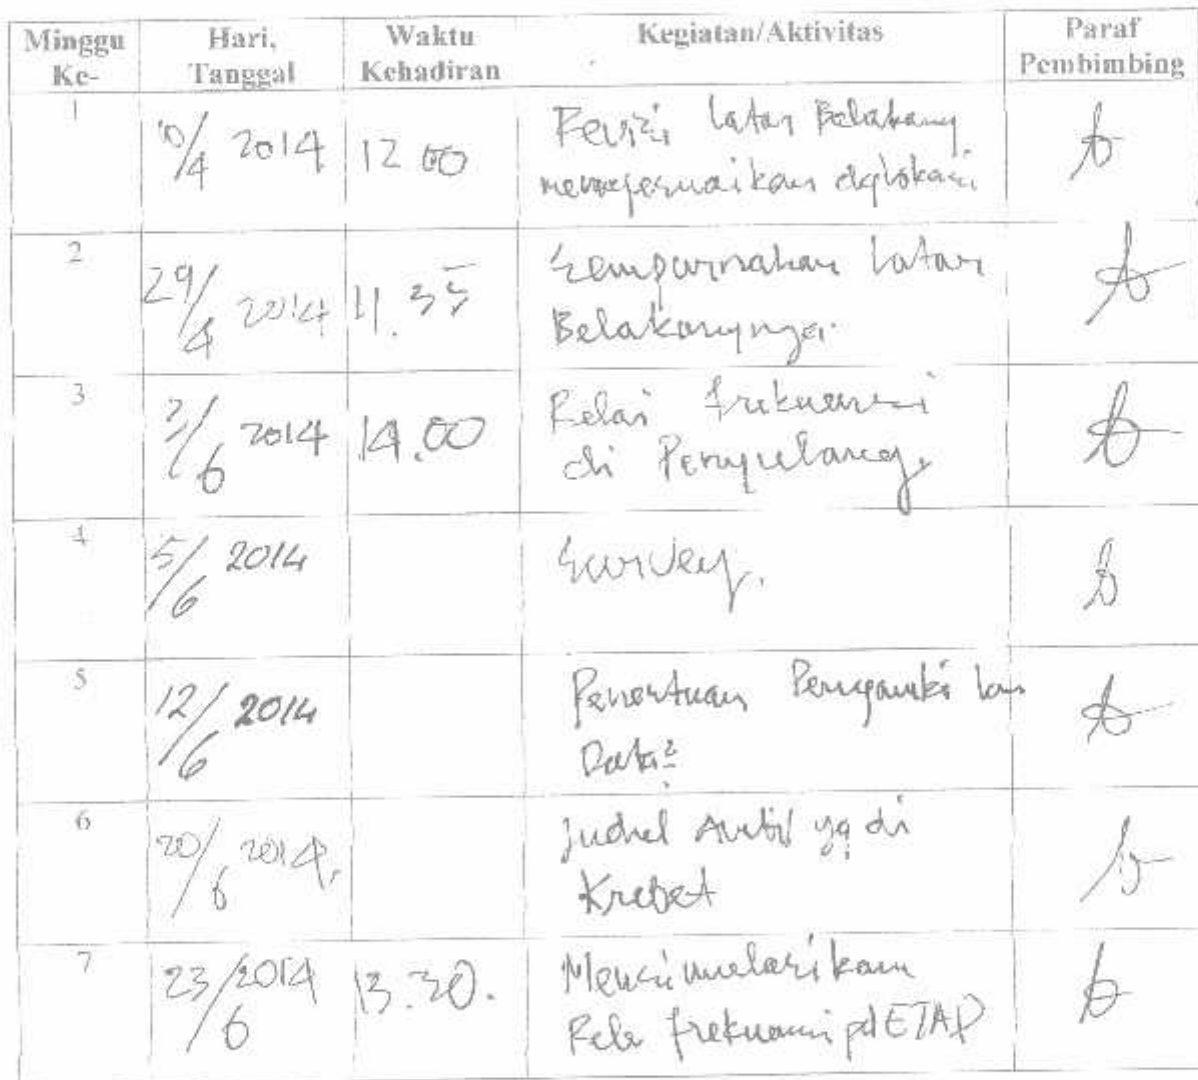 Minggu Ke- Hari, Tanggal Waktu Kehadiran Kegiatan/Aktivitas Paraf Pembimbing
1 10/4 2014 12 00 Revisi latar Belakang
menyesuaikan dg lokasi
2 29/4 2014 11.35 Sempurnakan latar
Belakangnya.
3 2/6 2014 14.00 Relai frekuensi
di Penyulang.
4 5/6 2014 Survey.
5 12/6 2014 Penentuan
Data²
6 20/6 2014. Judul yg di
Krebet
7 23/6 2014 13.30. Mensimulasikan
Rele frekuensi pd ETAP